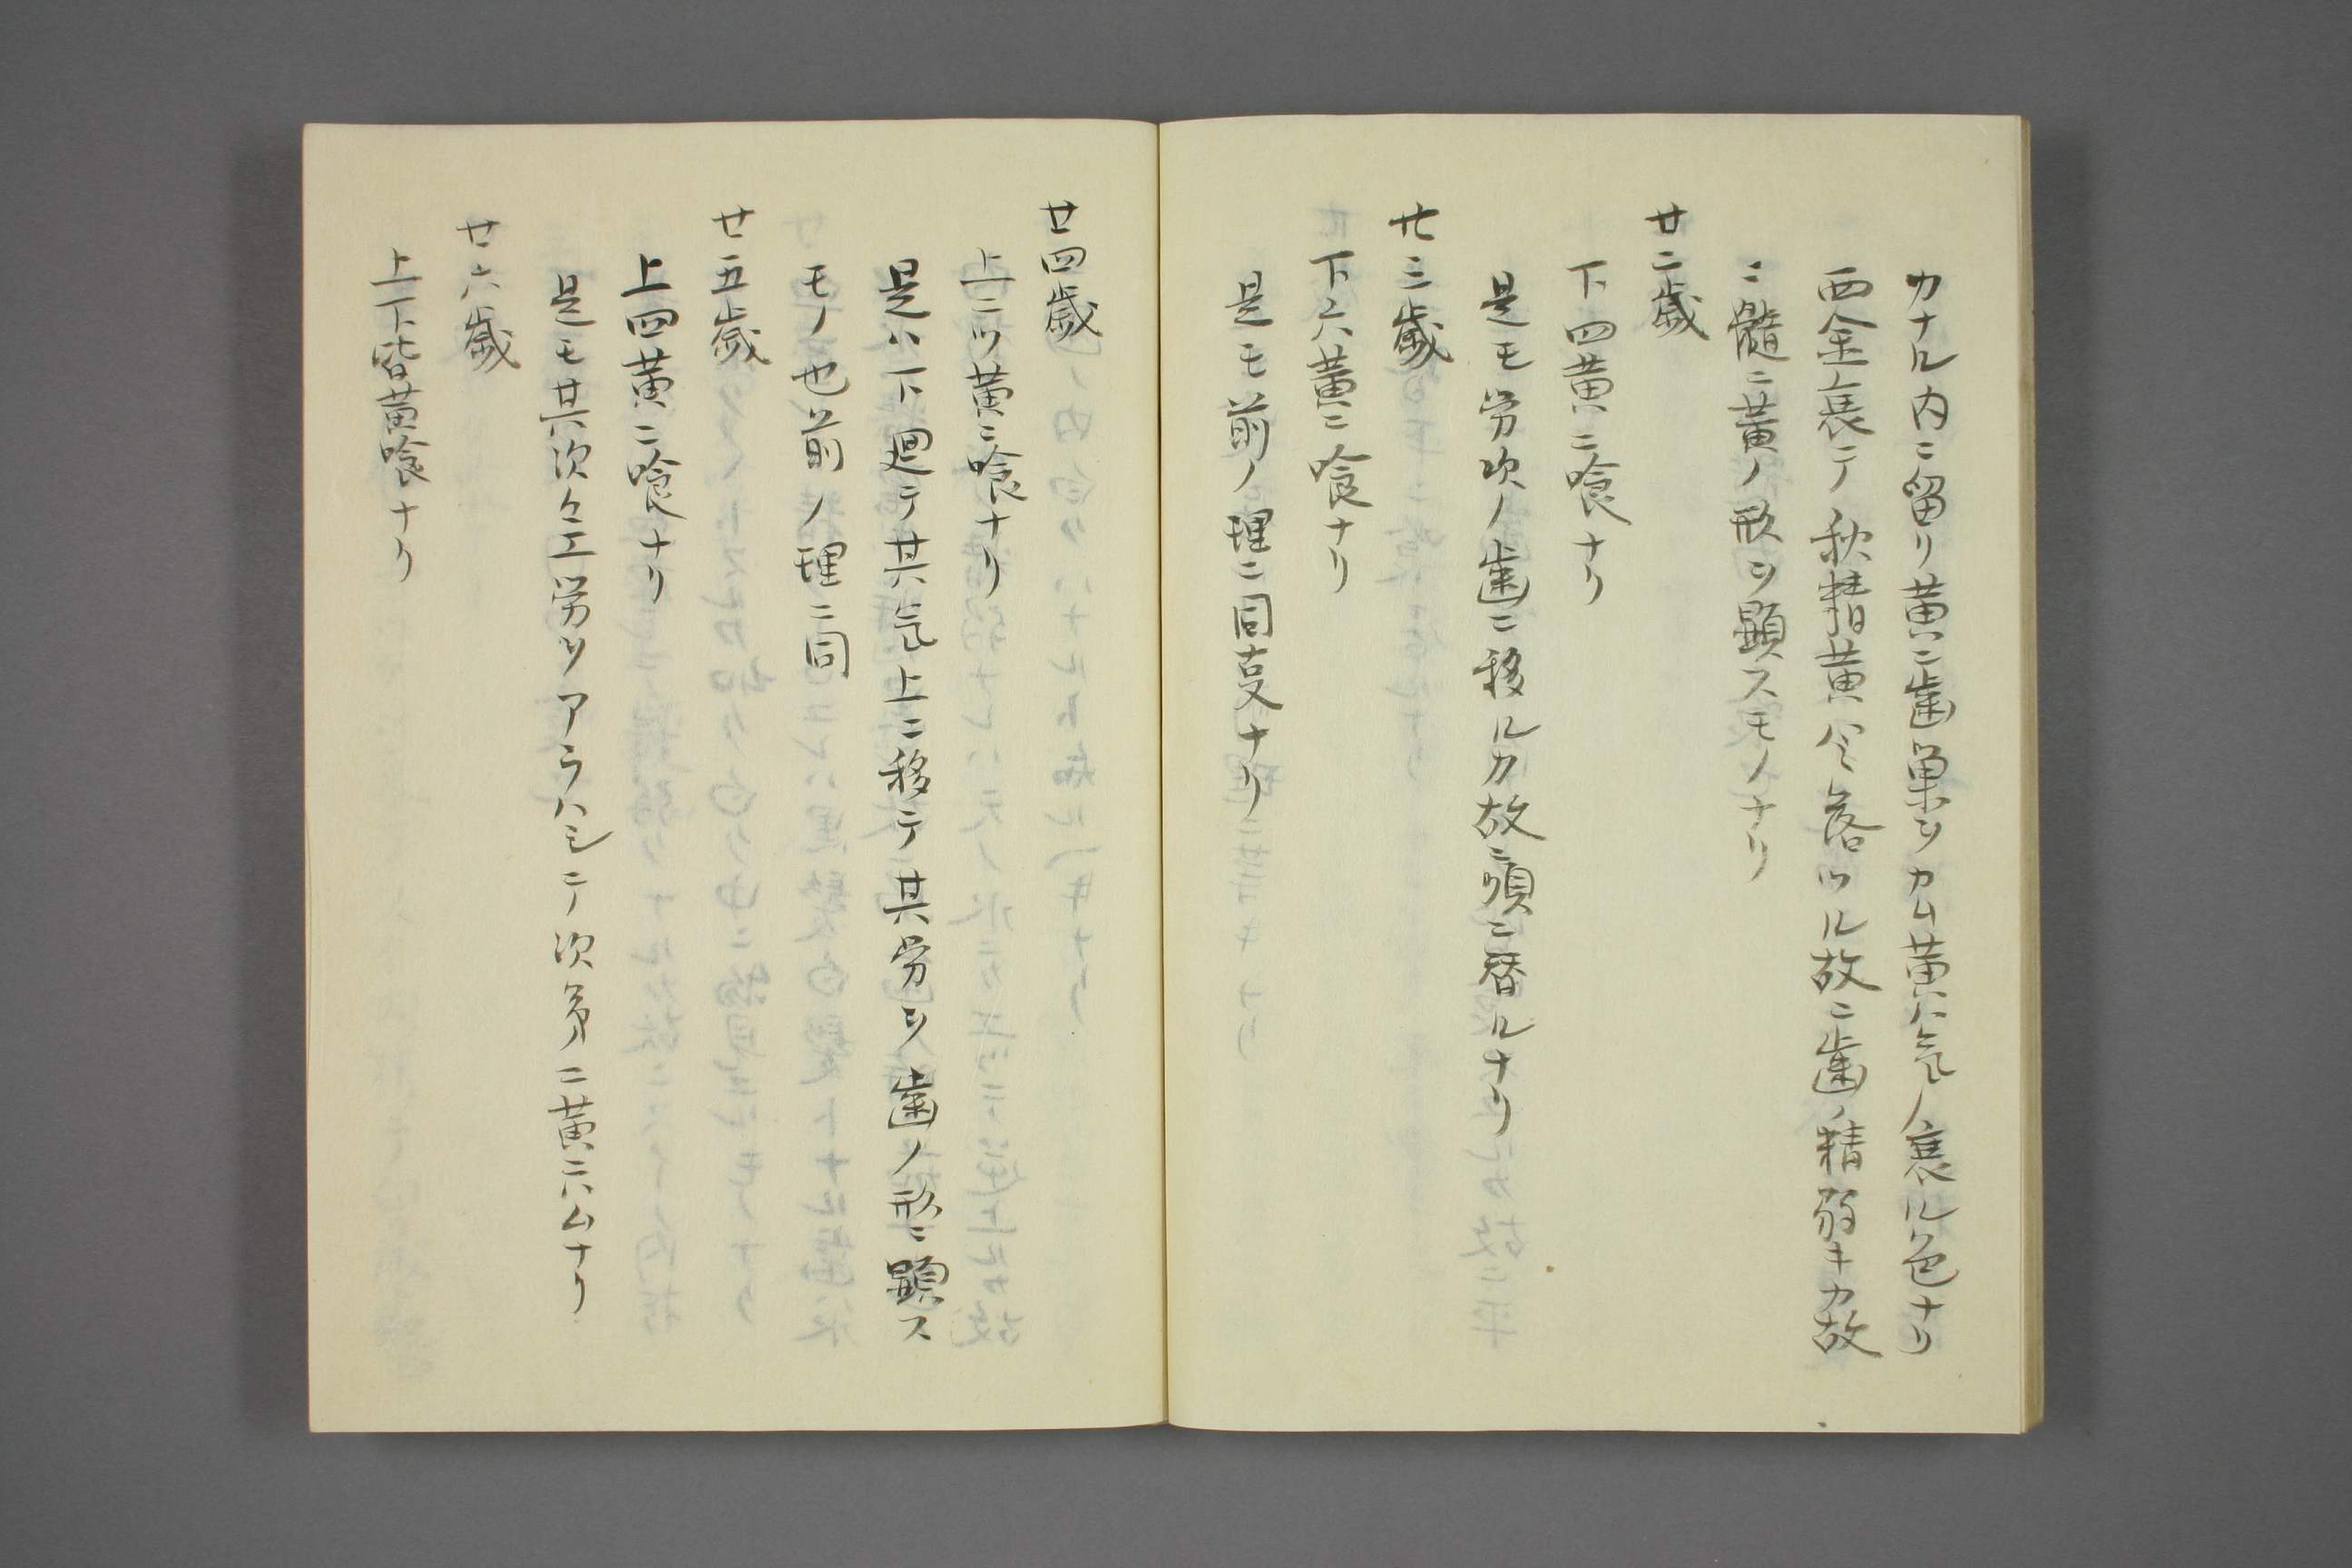 カナル内ニ留リ黄ニ歯巣ヲカム黄ハ気ノ衰ル色ナリ
西金衰テ秋精黄ハミ落ツル故ニ歯ノ精弱キカ故
ニ髄ニ黄ノ形ヲ顕スモノナリ
廿二歳
下四黄ニ喰ナリ
是モ労次ノ歯ニ移ルカ故ニ順ニ替ルナリ
廿三歳
下六黄ニ喰ナリ
是モ前ノ理ニ同支ナリ
廿四歳
上二ツ黄ニ喰ナリ
是ハ下廻テ其气上ニ移テ其労ヲ歯ノ形ニ顕ス
モノ也前ノ理ニ同
廿五歳
上四黄ニ喰ナリ
是モ其次々エ労ヲアラハシテ次第ニ黄ニハムナリ
廿六歳
上下皆黄喰ナリ